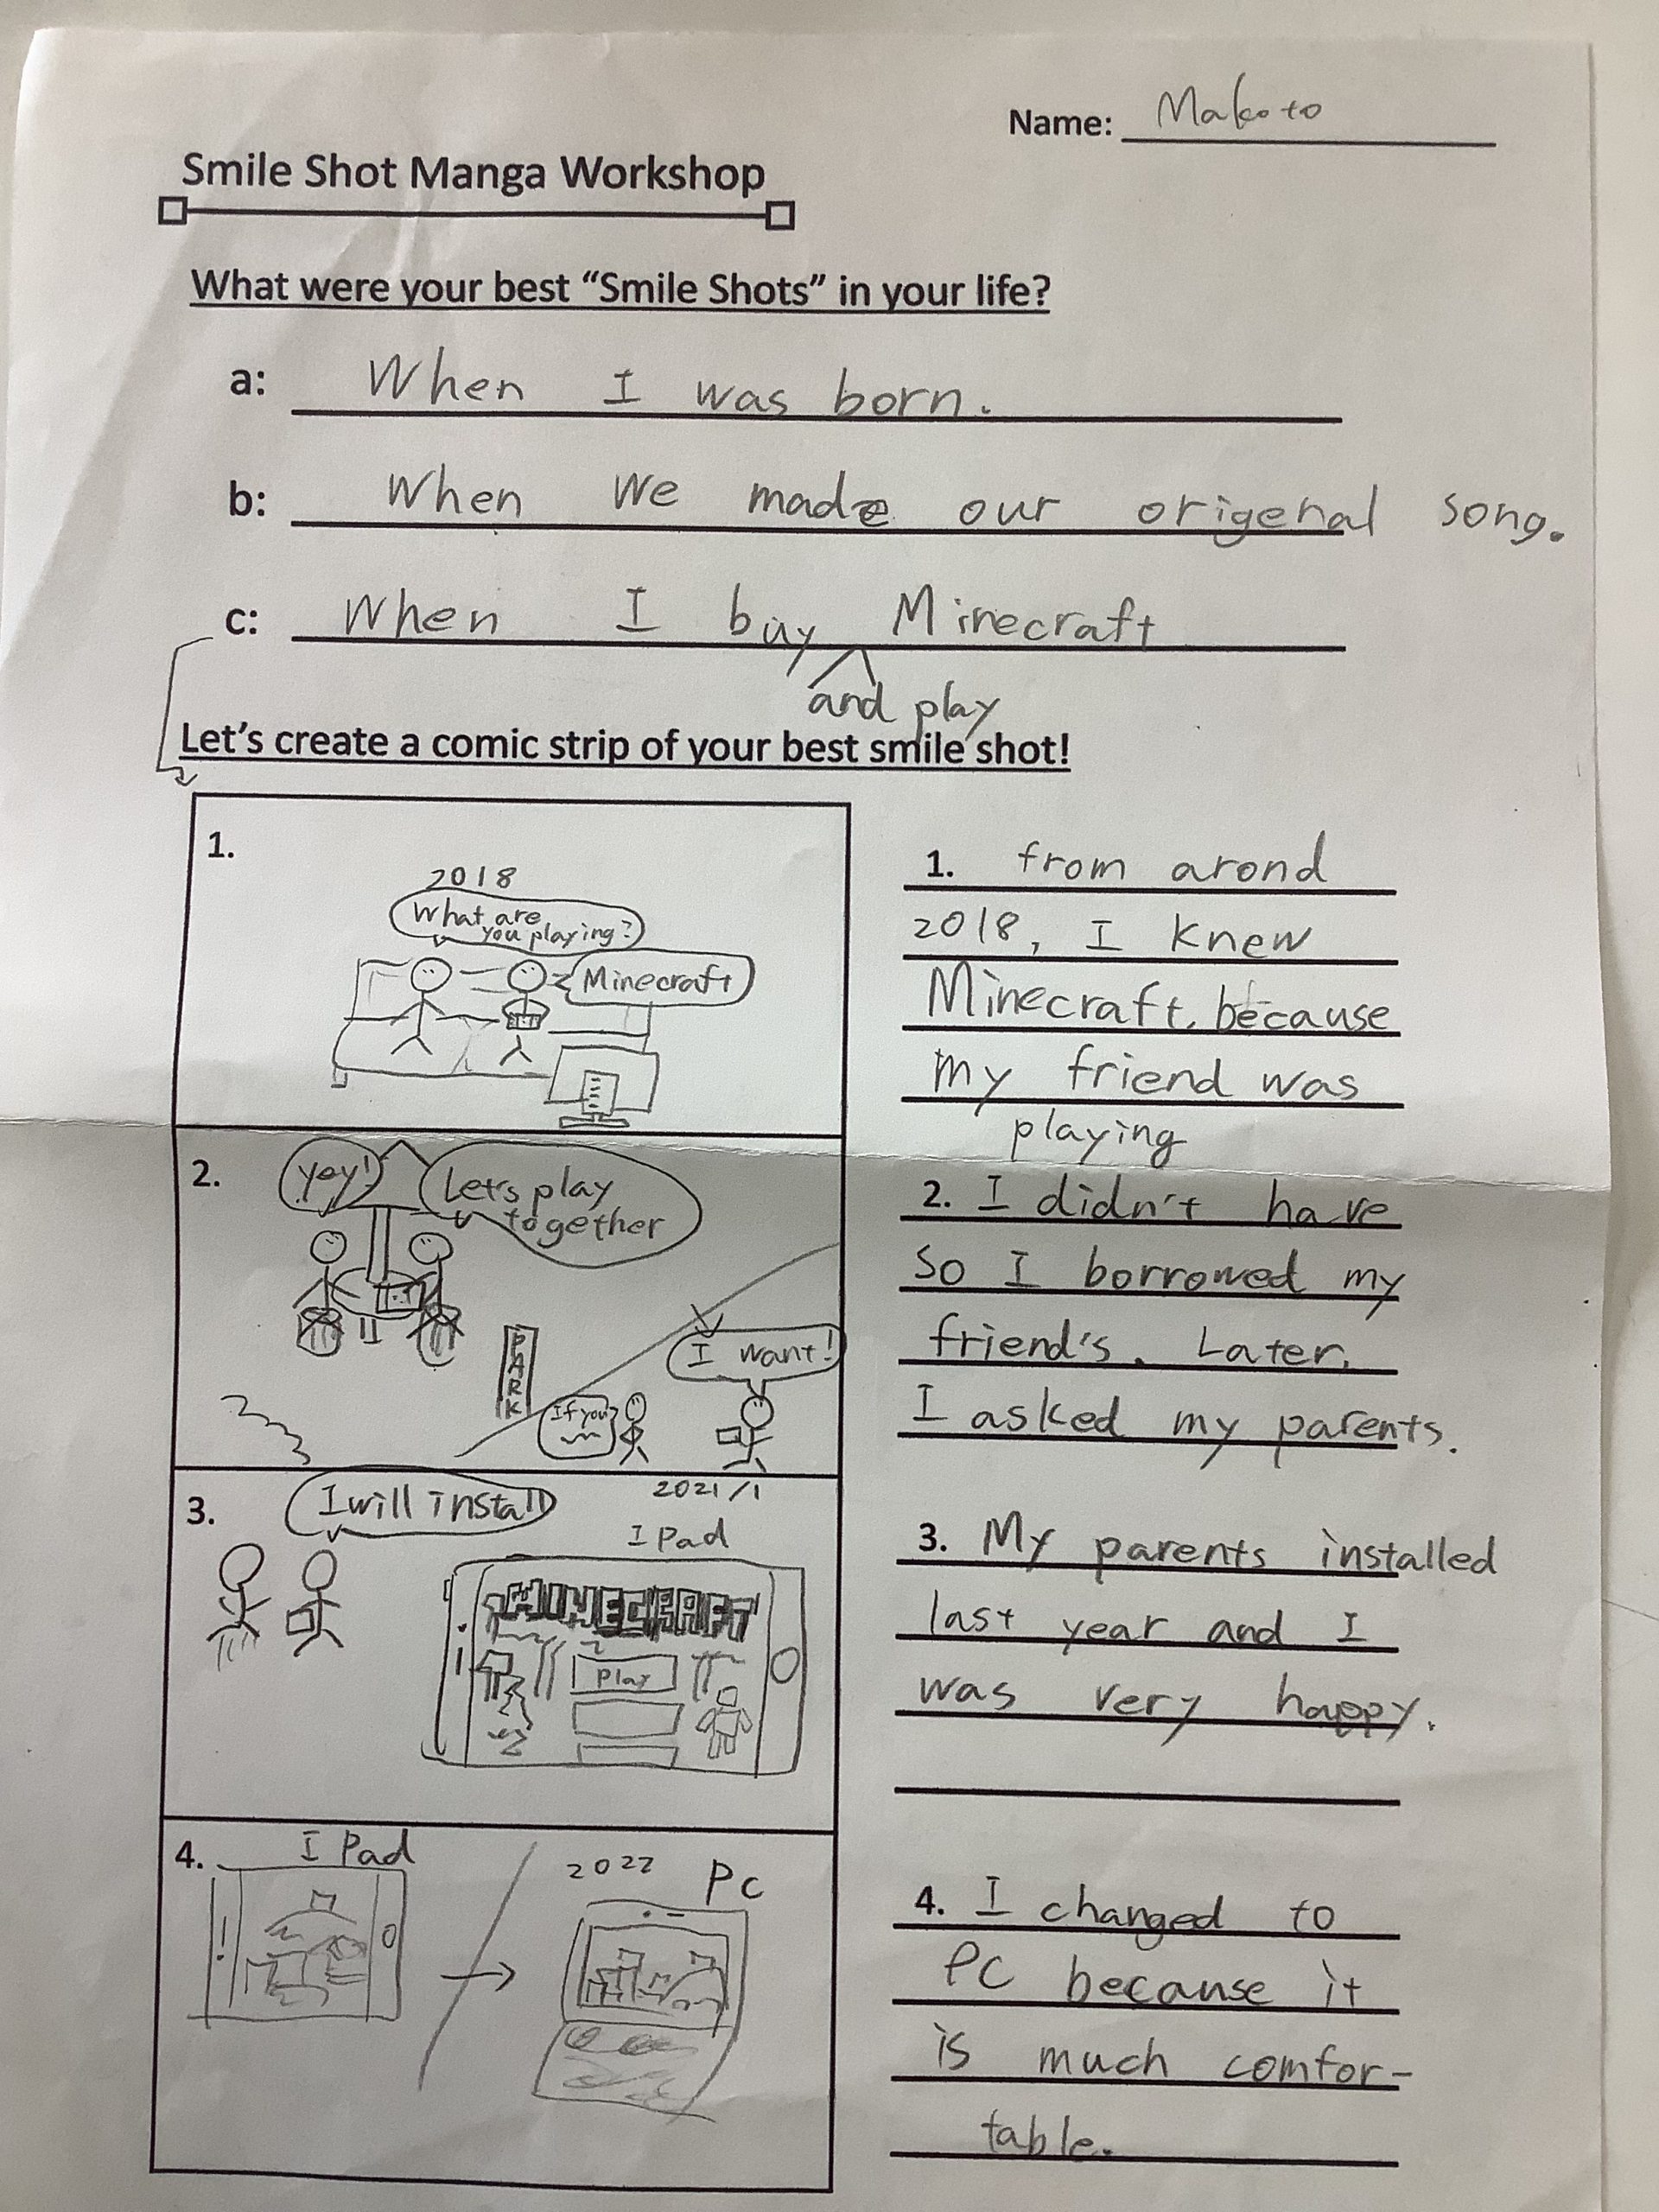 Name: Makoto
Smile Shot Manga Workshop
What were your best “Smile Shots” in your life?
a: When I was born.
b: When we made our origenal song.
c: When I buy Minecraft
and play
Let’s create a comic strip of your best smile shot!
1.
2018
What are
you playing?
Minecraft
1. from arond
2018, I knew
Minecraft, because
my friend was
playing
2.
yey!
Let's play
together
PARK
I want!
If you
2. I didn't have
so I borrowed my
friend's. Later,
I asked my parents.
3.
I will install
2021/1
I Pad
MINECRAFT
Play
3. My parents installed
last year and I
was very happy.
4.
I Pad
2022
PC
4. I changed to
PC because it
is much comfor-
table.